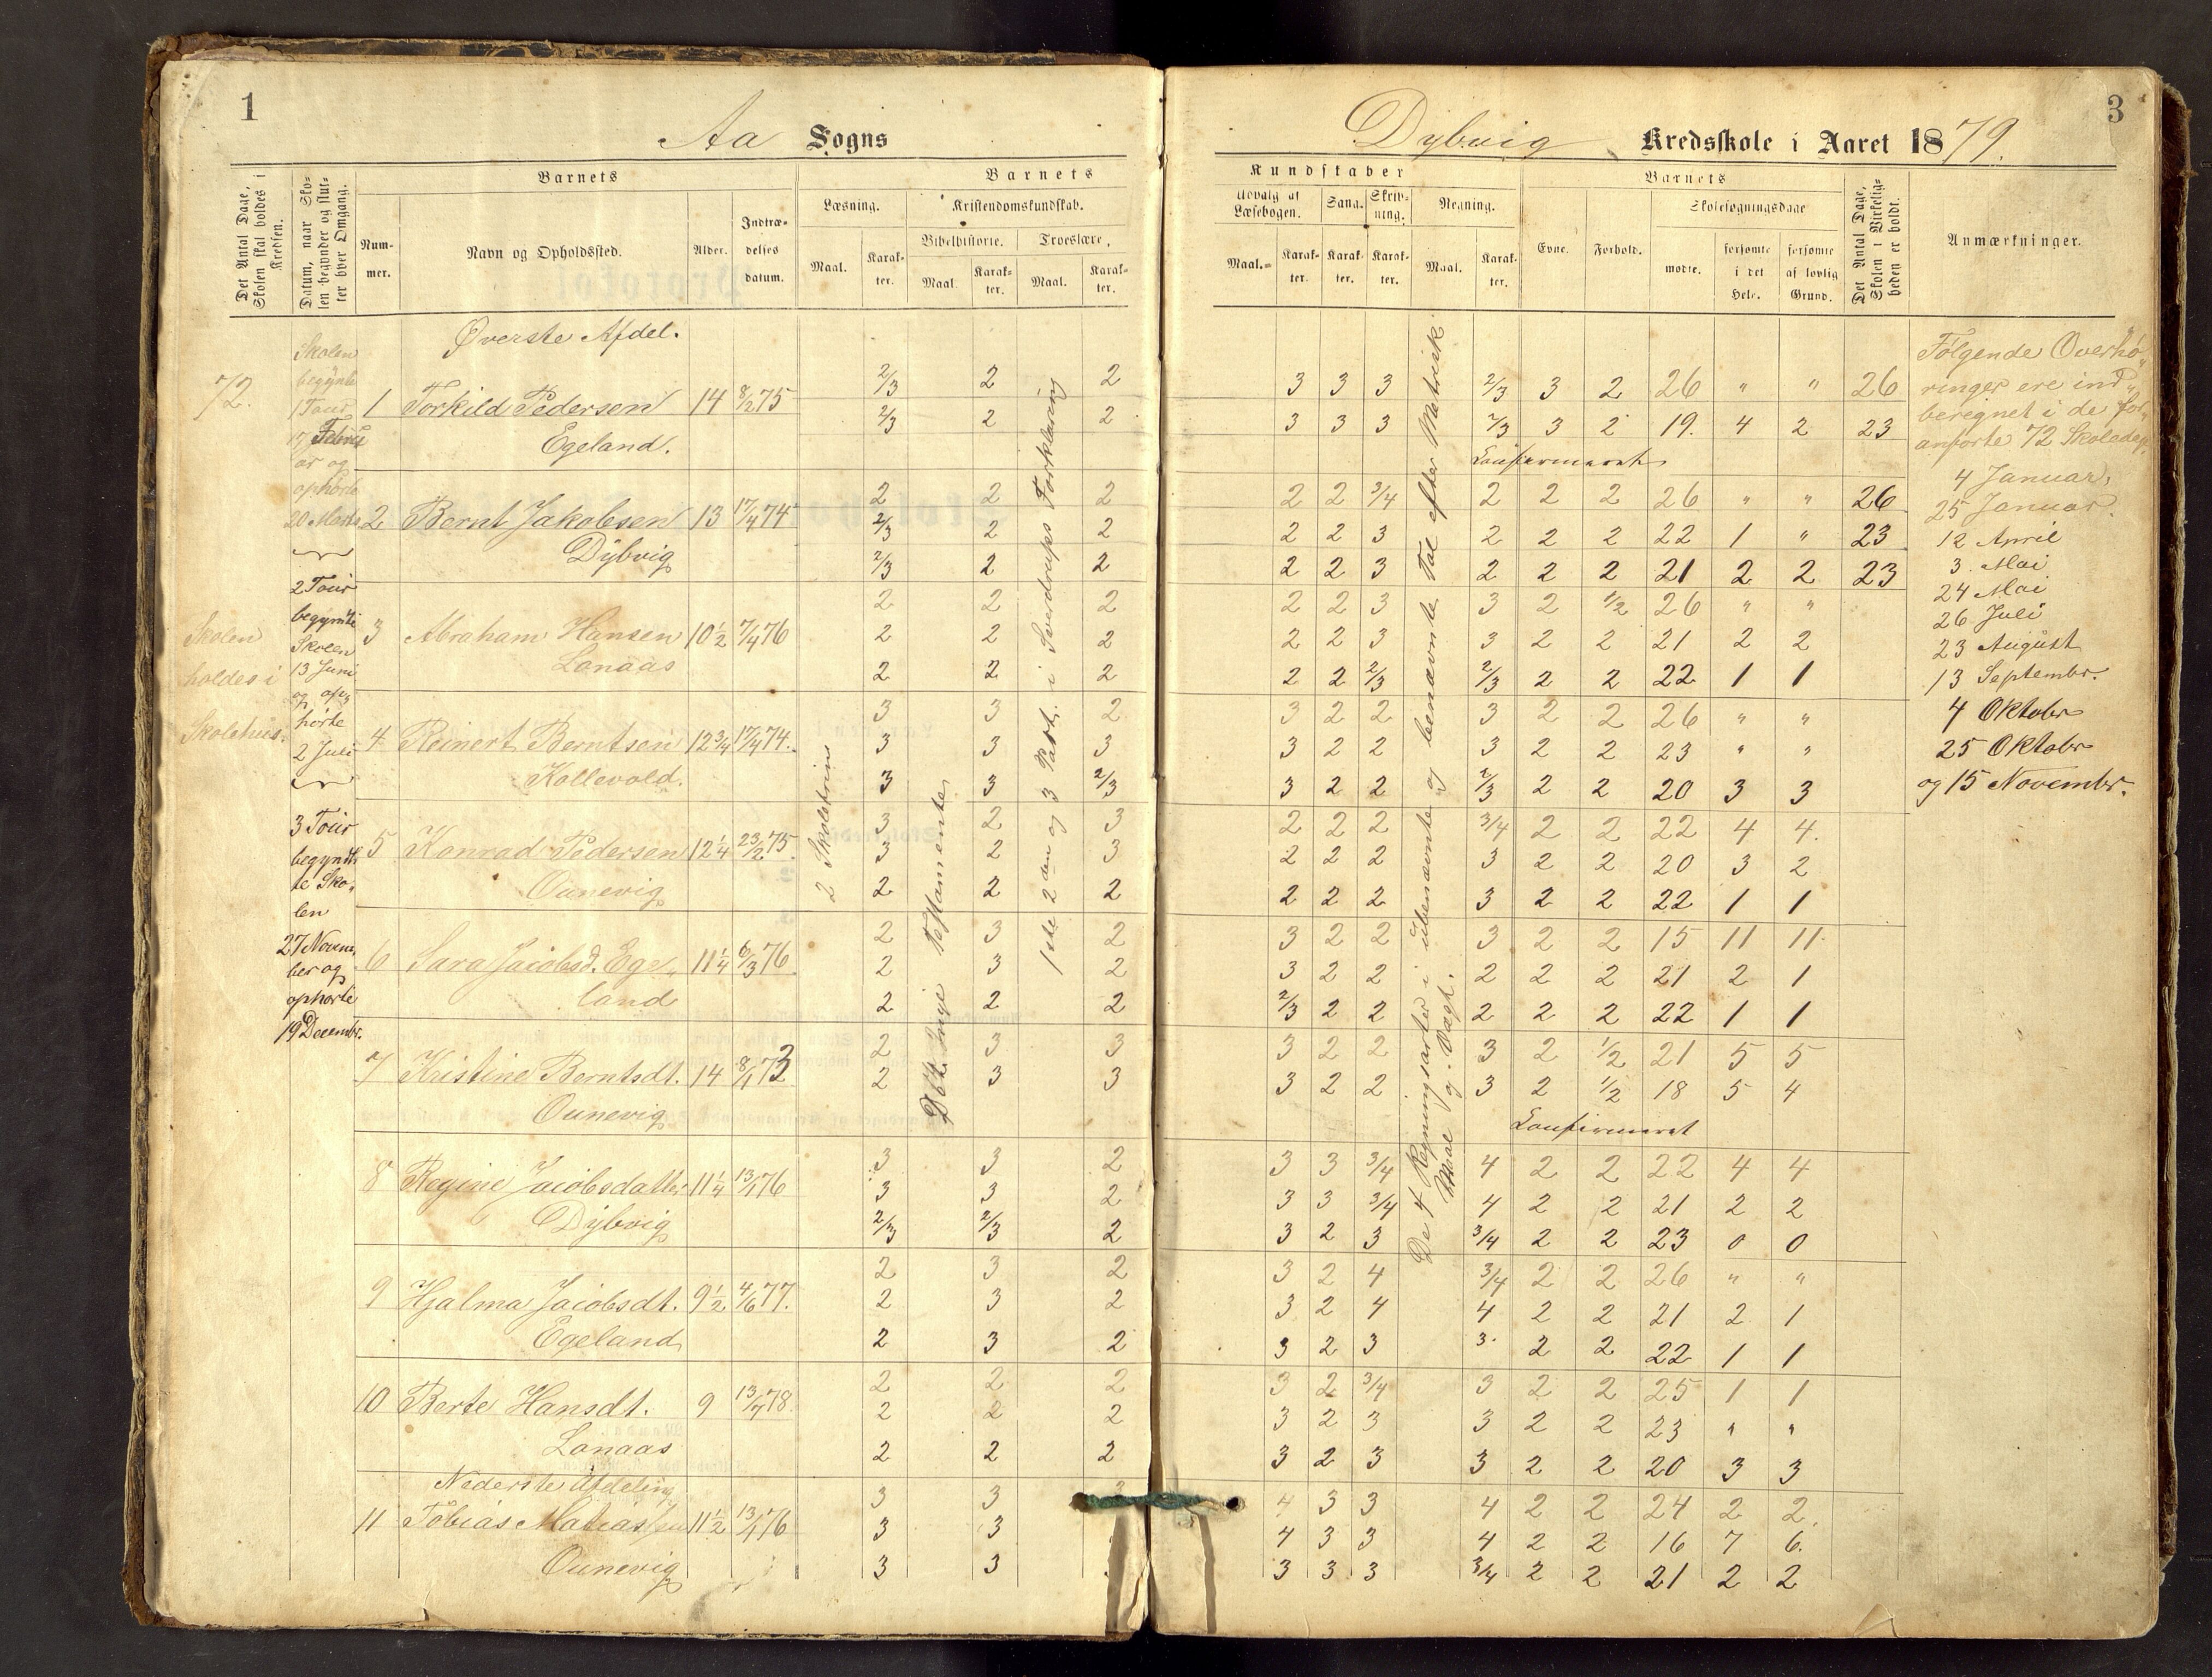 1
3
Aa Sogns
Dybvig Kredsskole i Aaret 1879.
Det Antal Dage, Skolen skal holdes i Kredsen.
Datum, naar Skolen begynder og slutter hver Omgang.
Barnets
Nummer.
Navn og Opholdssted.
Alder.
Indtrædelses datum.
Barnets
Læsning.
Maal.
Karakter.
Kristendomskundskab.
Bibelhistorie.
Maal.
Karakter.
Troeslære,
Maal.
Karakter.
Kundskaber
Udvalg af Læsebogen.
Maal.
Karakter.
Sang.
Karakter.
Skrivning.
Karakter.
Regning.
Maal.
Karakter.
Barnets
Evne.
Forhold.
Skolesøgningsdage
mødte.
forsømte i det Hele.
forsømte af lovlig Grund.
Det Antal Dage, Skolen i Virkeligheden er holdt.
Anmærkninger.
72.
Skolen
holdes i
Skolehus.
Skolen
begynte
1 Tour
17 Febru
ar og
ophørte
20 Marts
2 Tour
begynte
Skolen
13 Juni
og op
hørte
2 Juli
3 Tour
begyndte
Sko
len
27 Novem
ber og
ophørte
19 Decembr.
Øverste Afdel.
1 Torkild Pedersen 14 8/2 75
Egeland.
2/3 2 2 3 3 3 2/3 3 2 26 " " 26
2/3 2 2 3 3 3 2/3 3 2 19. 4 2 23
Confirmeret
2 Bernt Jakobsen 13 17/4 74
Dybvig
2 2 2 2 2 3/4 2 2 2 26 " " 26
2/3 2 2 2 2 3 2 2 2 22 1 " 23
2/3 2 2 2 2 3 2 2 2 21 2 2 23
3 Abraham Hansen 10 1/2 7/4 76
Lonaas
2 2 2 2 2 3 3 2 1/2 26 " "
2 2 2 2 2 3 3 2 2 21 2 2
2 2 2 2 2 2/3 2/3 2 2 22 1 1
4 Reinert Berntsen 12 3/4 17/4 74.
Kollevold.
3 3 2 3 2 2 3 2 2 26 " "
3 3 3 3 2 2 3 2 2 23 " "
3 3 2/3 3 2 2 2/3 2 2 20 3 3
5 Konrad Pedersen 12 1/4 23/2 75.
Ounevig
3 2 3 2 2 2 3/4 2 2 22 4 4.
3 2 3 2 2 2 3 2 2 20 3 2
2 2 2 2 2 2 3 2 2 22 1 1
6 Sara Jacobsd. Ege
land 11 1/4 6/3 76.
2 3 2 3 2 2 3 2 2 15 11 11.
2 3 2 3 2 2 2 2 2 21 2 1
2 2 2 2/3 2 2 2 2 2 22 1 1
7 Kristine Berntsdt. 14 8/1 73
Ounevig
2 3 3 3 2 2 3 2 1/2 21 5 5
2 3 3 3 2 2 3 2 1/2 18 5 4
Confirmeret
8 Regine Jacobsdatter 11 1/4 13/1 76
Dybvig
3 3 2 3 3 3/4 4 2 2 22 4 4
3 3 2 3 3 3/4 4 2 2 21 2 2
2/3 2/3 2 3 2 3 3/4 2 2 23 0 0
9 Hjalma Jacobsdt. 9 1/2 4/6 77.
Egeland
2 3 2 3 2 4 3/4 2 2 26 " "
2 3 2 3 2 4 4 2 2 21 2 1
2 3 2 3 2 3 3. 2 2 22 1 1
10 Berte Hansdt. 9 13/4 78.
Lonaas
2 2 2 3 2 3/4 3 2 2 25 1 1
2 2 2 3 2 3 3 2 2 23 " "
2 2 2 3 2 3 3 2 2 20 3 3
Nederste Afdeling
11 Tobias Matias 11 1/2 13/1 76
Ounevig
3 3 3 4 3 3 4 2 2 24 2 2.
3 3 4 3 3 4 2 2 16 7 6.
3 3 3 3 3 3/4 2 2 21 2 2
2 Skoletrin
Det nye testamente
1ste 2den og 3 Part. i Sverdrups Forklaring
De 4 Regningsarter i Ubenævnte og benævnte Tal efter Metrisk
Maal og Vægt.
Følgende Overhø
ringer ere ind
beregnet i de for
anførte 72 Skoledage.
4 Januar,
25 Januar.
12 April
3. Mai
24 Mai
26 Juli
23 August
13 Septembr.
4 Oktobr
25 Oktobr
og 15 Novembr.